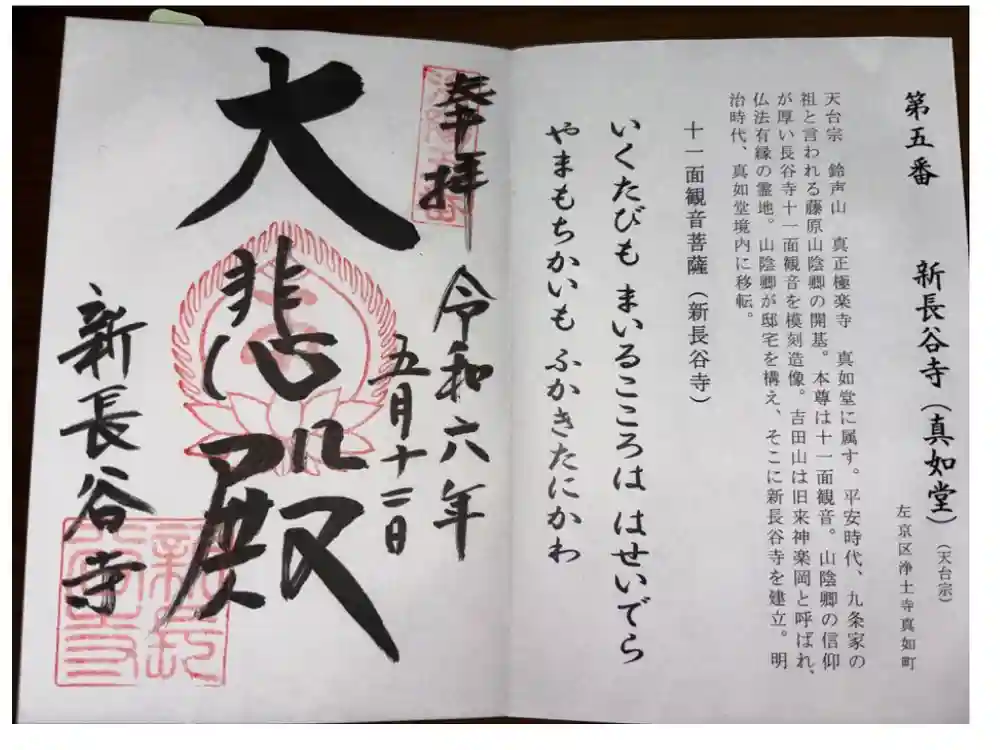 第五番 新長谷寺（真如堂）（天台宗）
左京区浄土寺真如町
天台宗 鈴声山 真正極楽寺 真如堂に属す。平安時代、九条家の
祖と言われる藤原山陰卿の開基。本尊は十一面観音。山陰卿の信仰
が厚い長谷寺十一面観音を模刻造像。吉田山は旧来神楽岡と呼ばれ、
仏法有縁の霊地。山陰卿が邸宅を構え、そこに新長谷寺を建立。明
治時代、真如堂境内に移転。
十一面観音菩薩（新長谷寺）
いくたびも まいるこころは はせいでら
やまもちかいも ふかきたにかわ
奉拝
令和六年
五月十二日
大悲殿
新長谷寺